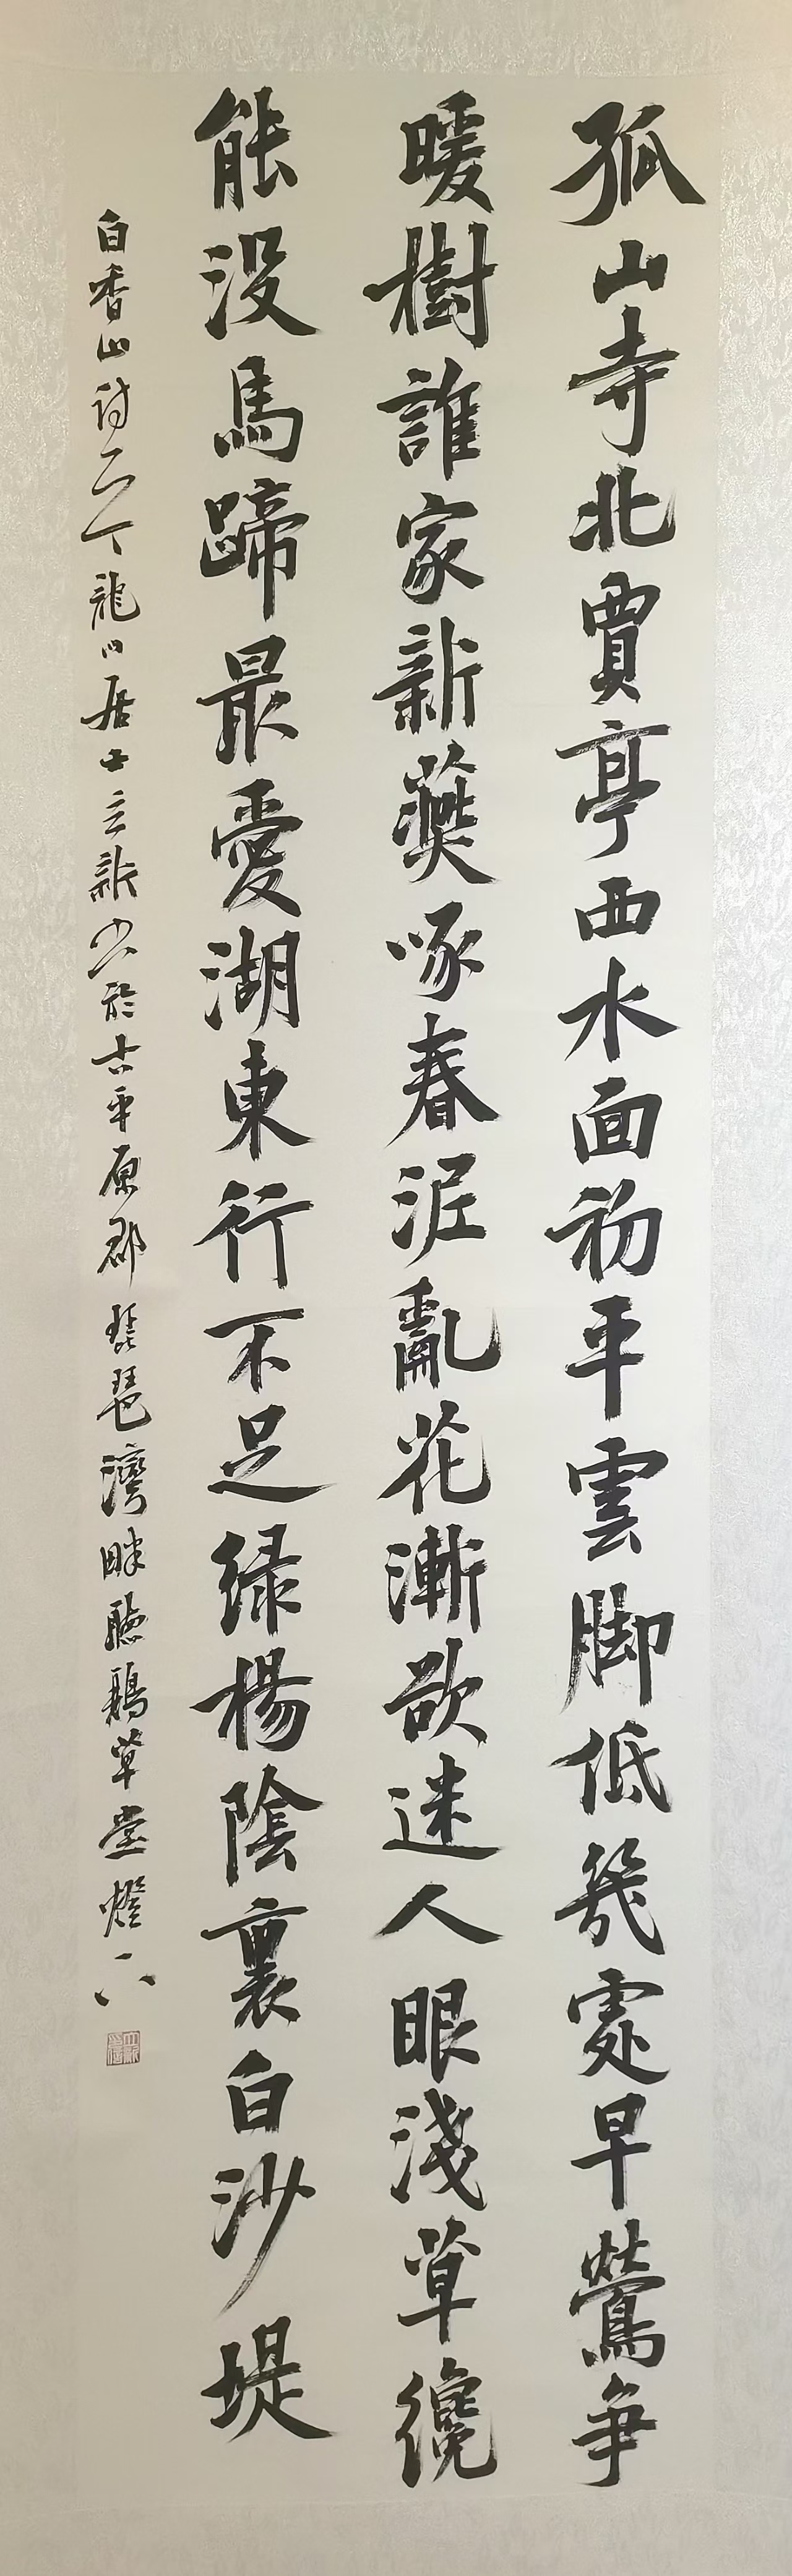 孤山寺北賈亭西水面初平雲脚低幾處早鶯爭
暖樹誰家新燕啄春泥亂花漸欲迷人眼淺草纔
能没馬蹄最愛湖東行不足绿楊陰裏白沙堤
白香山詩一首龍山居士立新書於古平原郡琵琶灣畔聽鵝草堂燈下